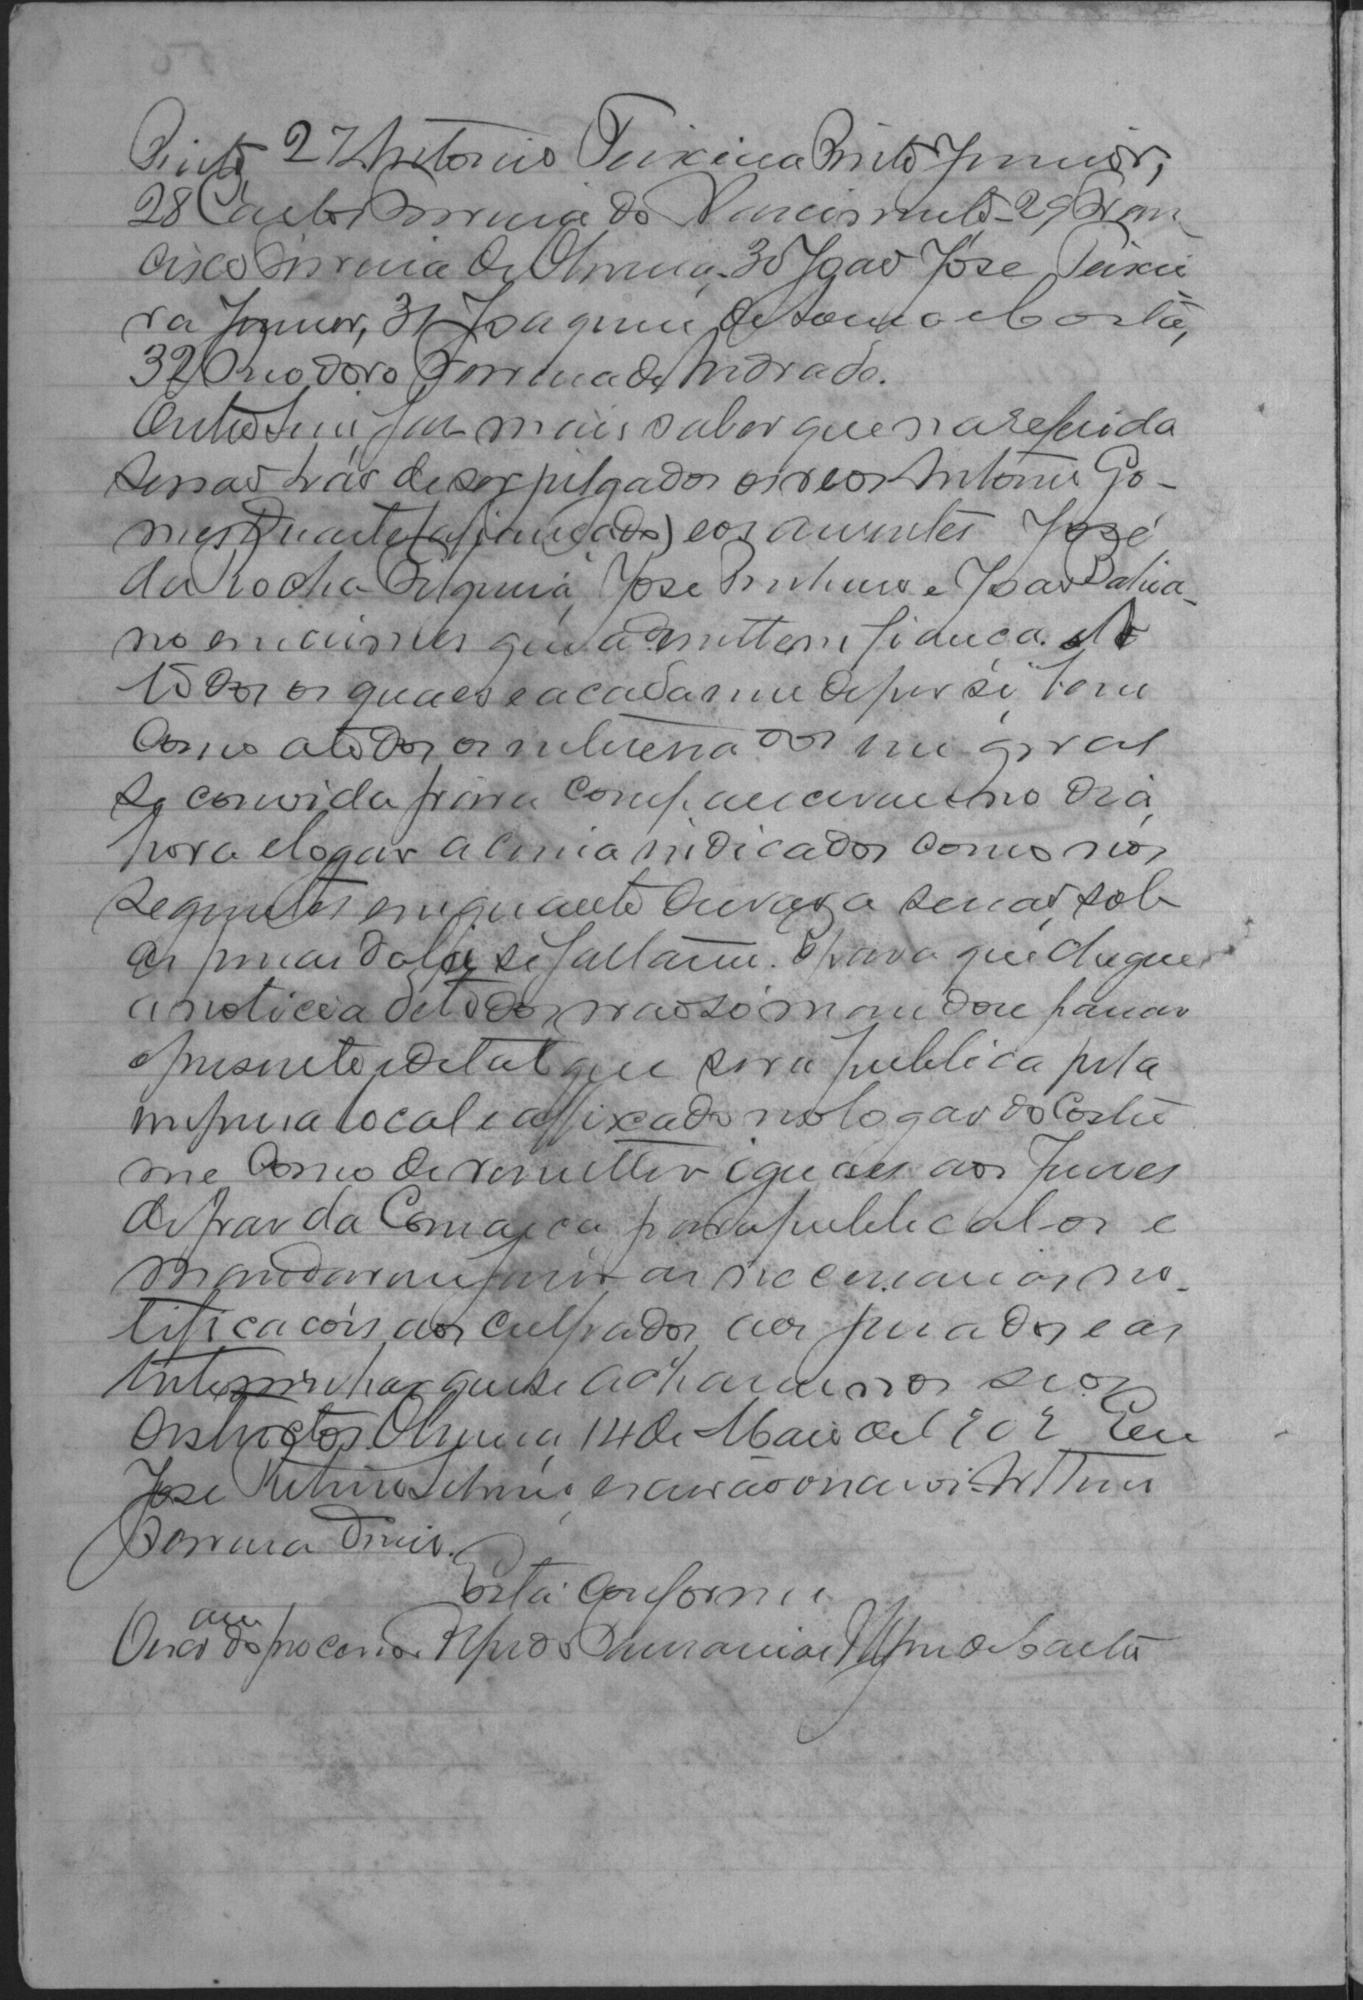 Pinto 27 Antonio Teixeira Pinto Junior,
28 Carlos Ferreira do Nascimento - 29 Fran
cisco Pereira de Oliveira, 30 João José Teixei
ra Junior, 31 Joaquim de Souza e Costa,
32 Theodoro Ferreira de Andrade.
Outro sim faz mais saber que na referida
sessão hão de ser julgados os reos Antonio Go-
mes Duarte (afiançado) e os auzentes José
da Rocha José Pinheiro e João Bahia-
no em crimes que admittem fiança. A
todos os quaes e a cada um de per si, bem
como a todos os interessados em geral
se convida para comparecerem no dia,
hora e logar acima indicados como nos
seguintes enquanto durar a sessão, sob
as penas da lei se faltarem. E para que chegue
a noticia de todos, não só mandou passar
o presente edital que será publica pela
imprensa local e affixado no logar do Costu
me como de remetter iguaes aos Juizes
de paz da Comarca para publical-os e
mandarem fazer as necessarias no-
tificacões aos culpados, aos jurados e as
testemunhas que se acharem nos seos
districtos. Oliveira, 14 de Maio de 1902 Eu
José escrivão o escrevi. Arthur
Ferreira Diniz.
Está Conforme